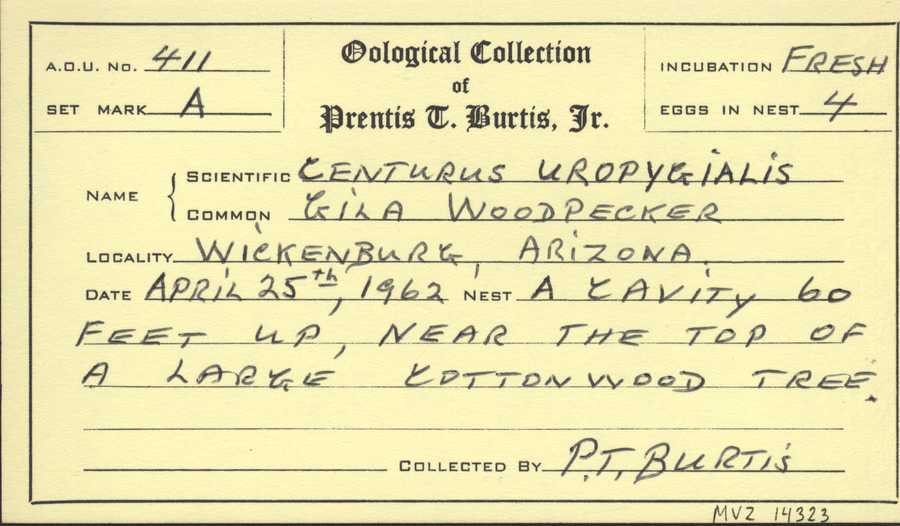 A.O.U. No. 411
Oological Collection
of
Prentis T. Burtis, Jr.
INCUBATION FRESH
SET MARK A
EGGS IN NEST 4
NAME
SCIENTIFIC CENTURUS UROPYGIALIS
COMMON GILA WOODPECKER
LOCALITY WICKENBURG, ARIZONA.
DATE APRIL 25th, 1962 NEST A CAVITY 60
FEET UP, NEAR THE TOP OF
A LARGE COTTONWOOD TREE.
COLLECTED BY P.T. BURTIS
MVZ 14323